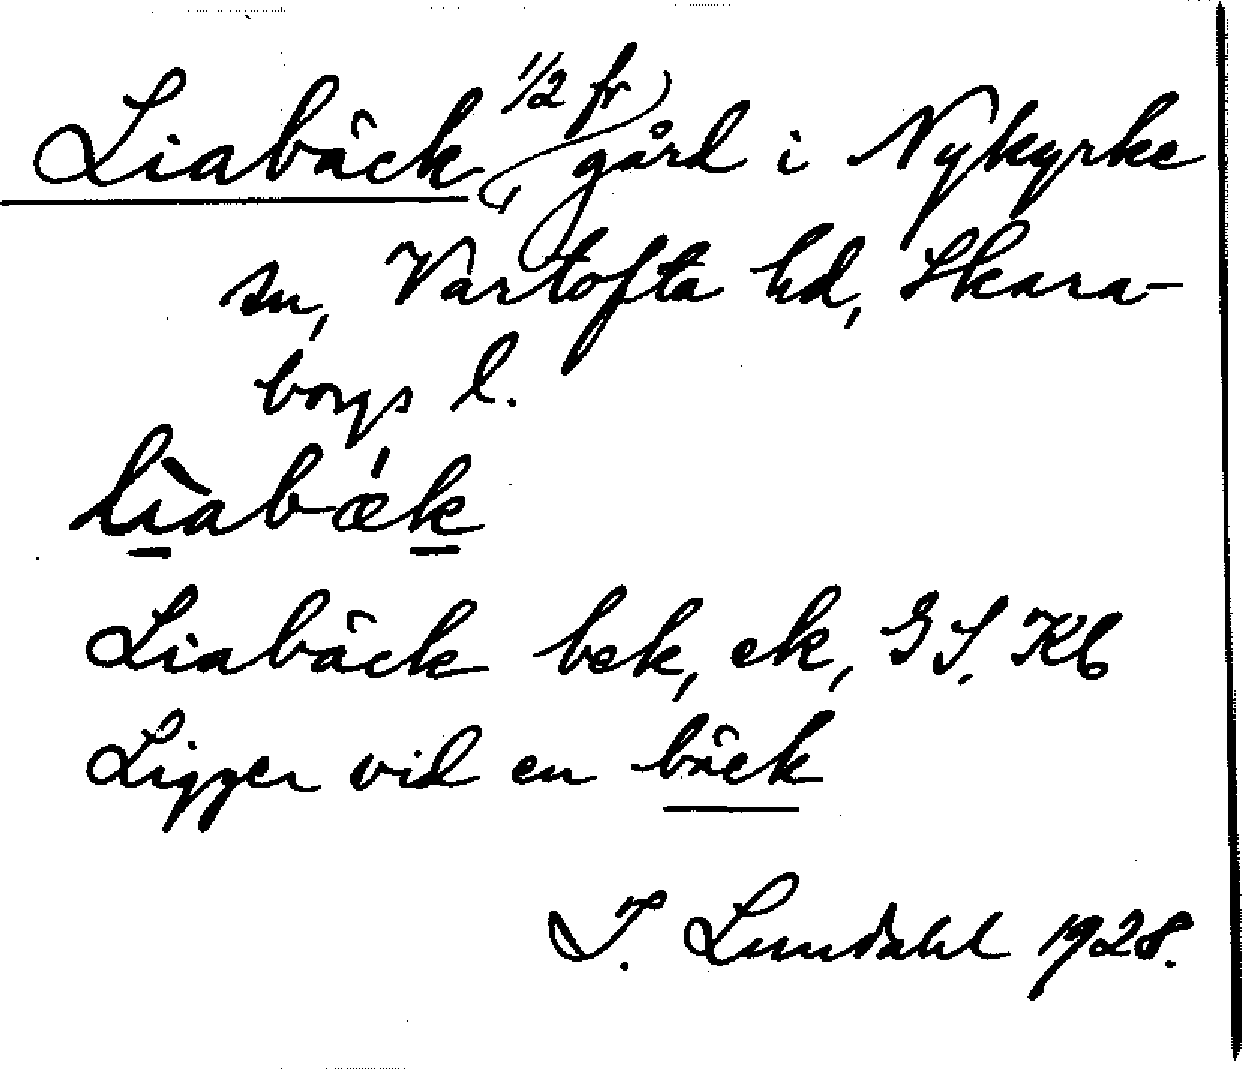 Liabäck, 1/2 fr gård i Nykyrke
sn, Vartofta hd, Skara-
borgs l.
lìabǽk
Liabäck bek, ek, GS. Kb
Ligger vid en bäck
I. Lundahl 1928.